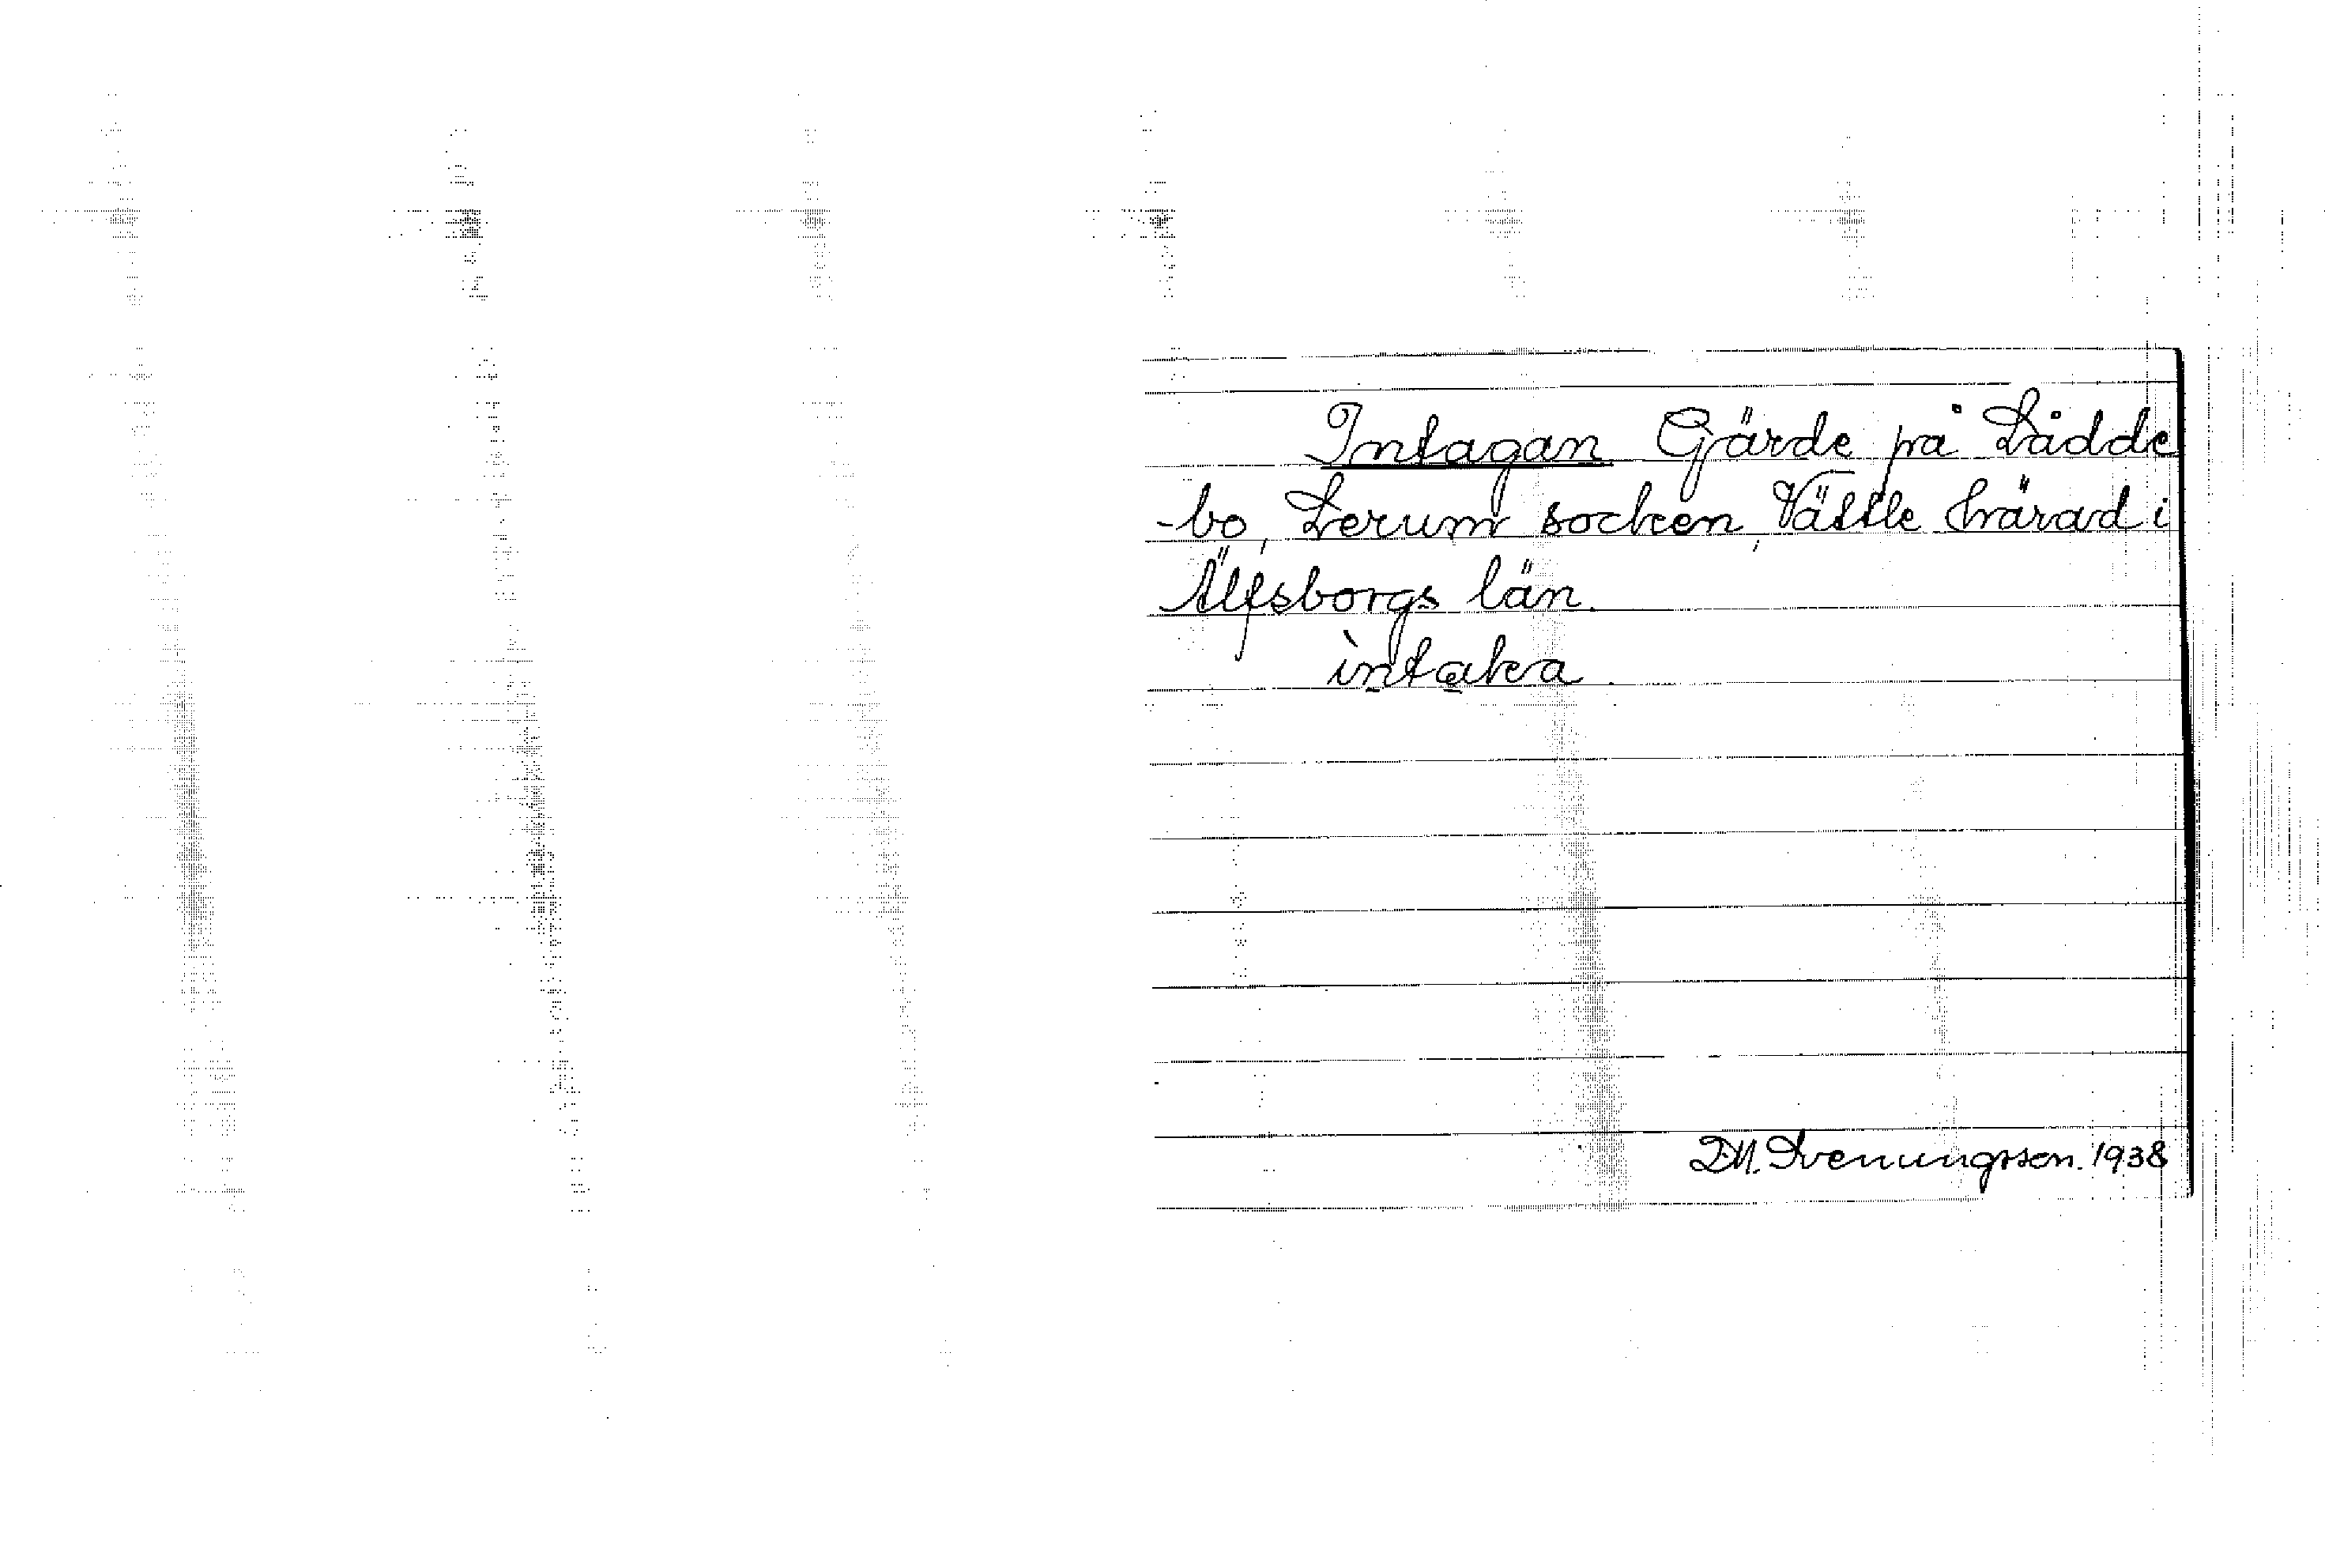 Intagan Gärde på Lådde
-bo, Lerum socken, Vättle härad i
Älfsborgs län.
ìntaka
D.M. Svenungsson. 1938